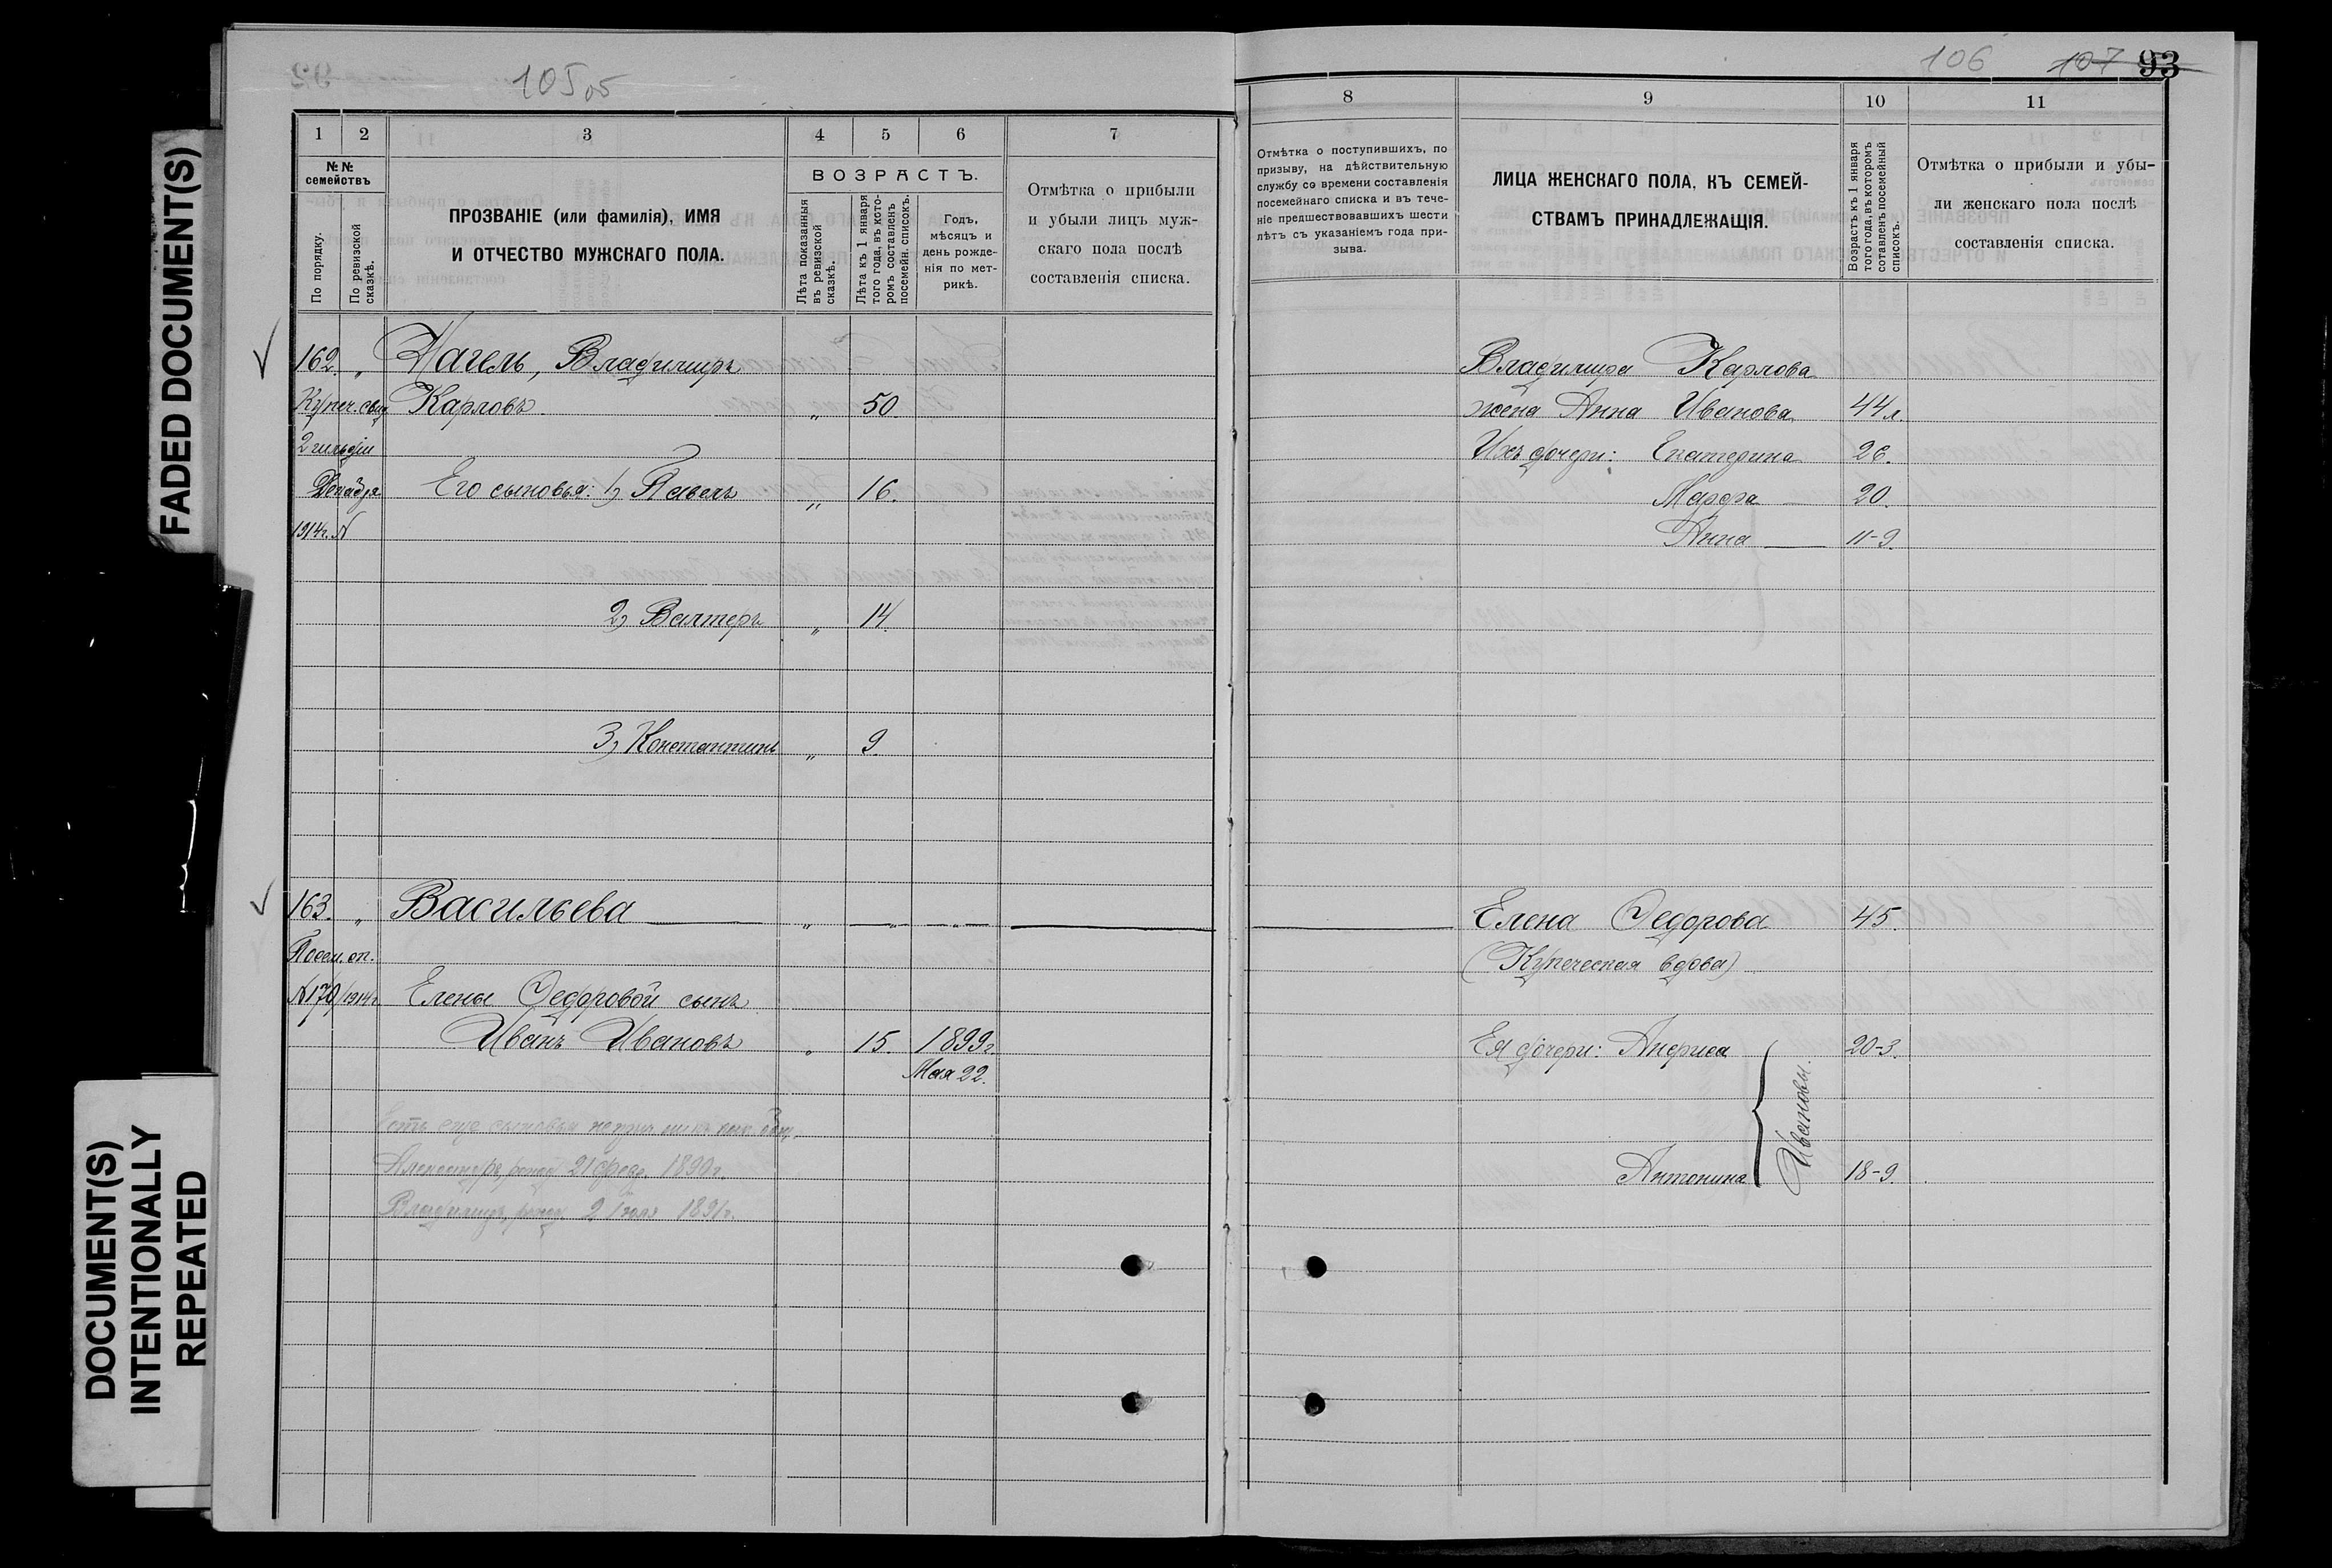 FADED DOCUMENT(S)
DOCUMENT(S)
INTENTIONALLY
REPEATED
105 об
1 2 3 4 5 6 7
№№ семействъ
По порядку.
По ревизской сказкѣ.
ПРОЗВАНІЕ (или фамилія), ИМЯ
И ОТЧЕСТВО МУЖСКАГО ПОЛА.
ВОЗРАСТЪ.
Лѣта показанныя въ ревизской сказкѣ.
Лѣта къ 1 января того года, въ которомъ составленъ посемейн. списокъ.
Годъ,
мѣсяцъ и
день рожде-
нія по мет-
рикѣ.
Отмѣтка о прибыли
и убыли лицъ муж-
скаго пола послѣ
составленія списка.
162. " Нагель, Владиміръ
Купеч. свид. Карловъ " 50
2 гильдіи
Его сыновья: 1) Павелъ " 16.
1914г. №
2) Валтеръ " 14.
3) Константинъ " 9.
163. " Васильева " " "
Посем. сп.
№170/1914г. Елены Ѳедоровой сынъ
Иванъ Ивановъ " 15. 1899г.
Мая 22.
Есть еще сыновья
Александръ, рожд. 21 февр. 1890г.
Владиміръ, рожд. 2 Іюля 1891г.
106 107 93
8 9 10 11
Отмѣтка о поступившихъ, по
призыву, на дѣйствительную
службу со времени составленія
посемейнаго списка и въ тече-
ніе предшествовавшихъ шести
лѣтъ съ указаніемъ года при-
зыва.
ЛИЦА ЖЕНСКАГО ПОЛА, КЪ СЕМЕЙ-
СТВАМЪ ПРИНАДЛЕЖАЩІЯ.
Возрастъ къ 1 января
того года, въ которомъ
сотавленъ посемейный
списокъ.
Отмѣтка о прибыли и убы-
ли женскаго пола послѣ
составленія списка.
Владиміра Карлова
жена Анна Иванова 44 л.
Ихъ дочери: Екатерина 26.
Марфа 20.
Анна 11-9.
Елена Ѳедорова 45.
(Купеческая вдова)
Ея дочери: Анфиса 20-3.
Ивановы.
Антонина 18-9.